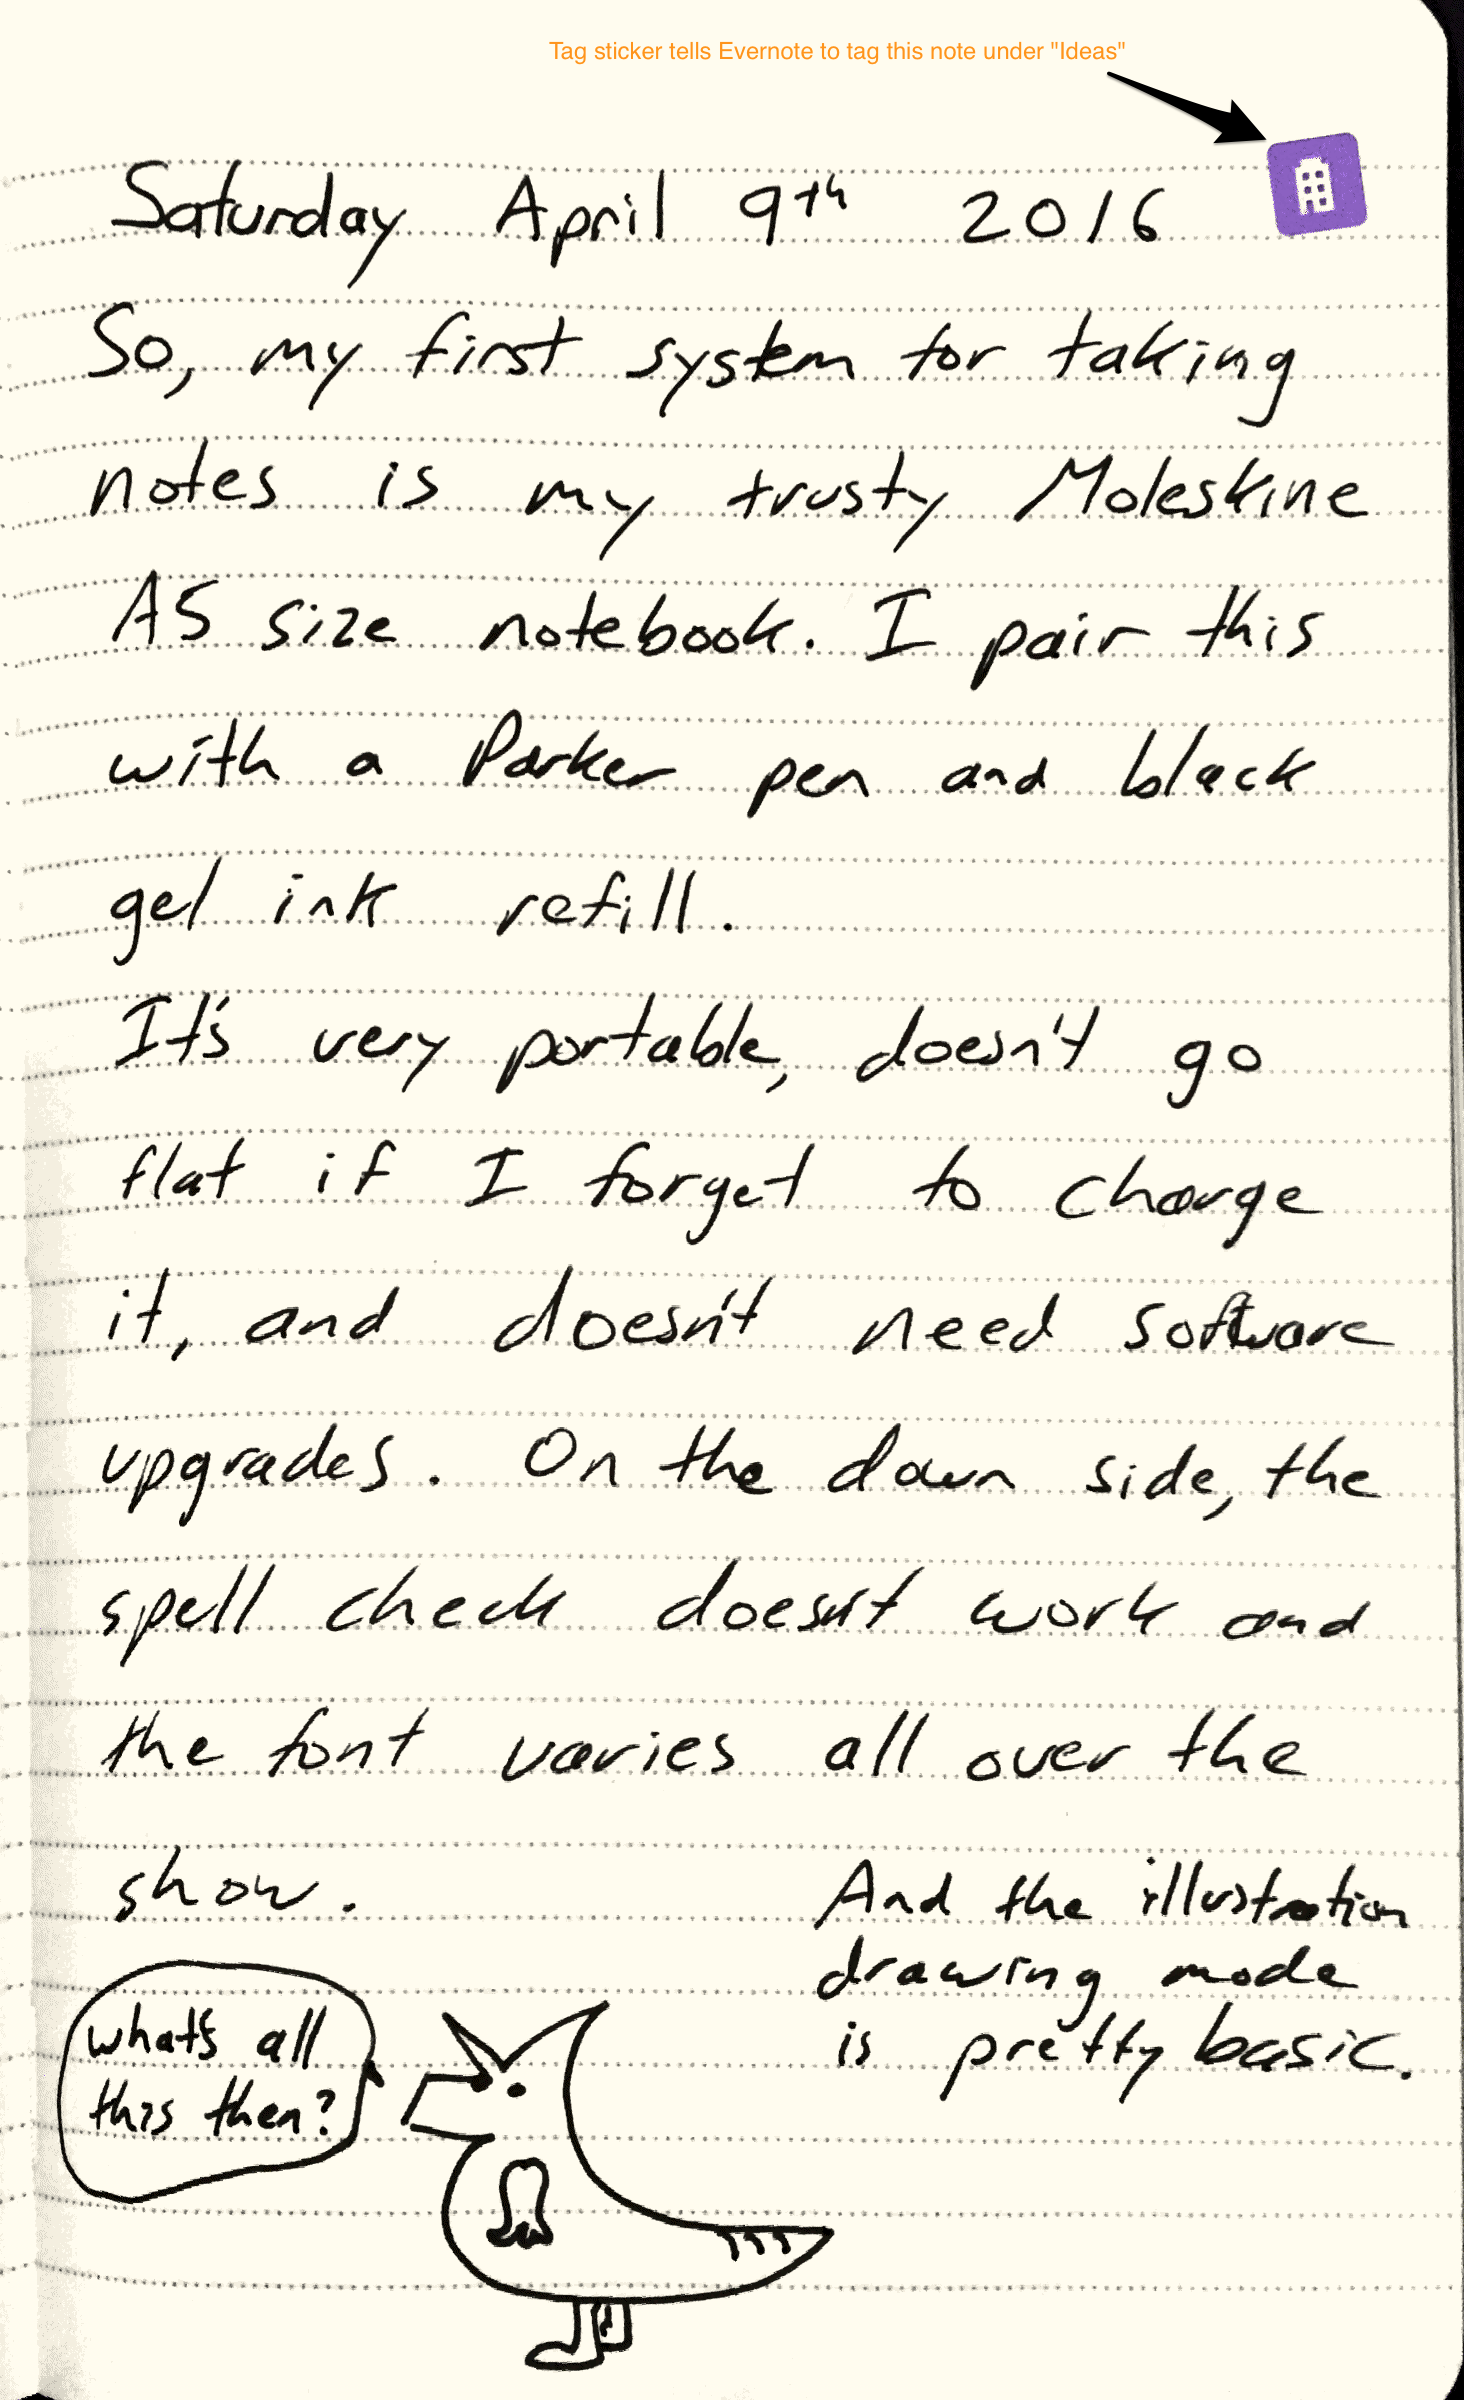 Tag sticker tells Evernote to tag this note under "Ideas"
Saturday April 9th 2016
So, my first system for taking
notes is my trusty Moleskine
A5 size notebook. I pair this
with a Parker pen and black
gel ink refill.
It's very portable, doesn't go
flat if I forget to charge
it, and doesn't need software
upgrades. On the down side, the
spell check doesn't work and
the font varies all over the
show.
And the illustration
drawing mode
is pretty basic.
what's all
this then?